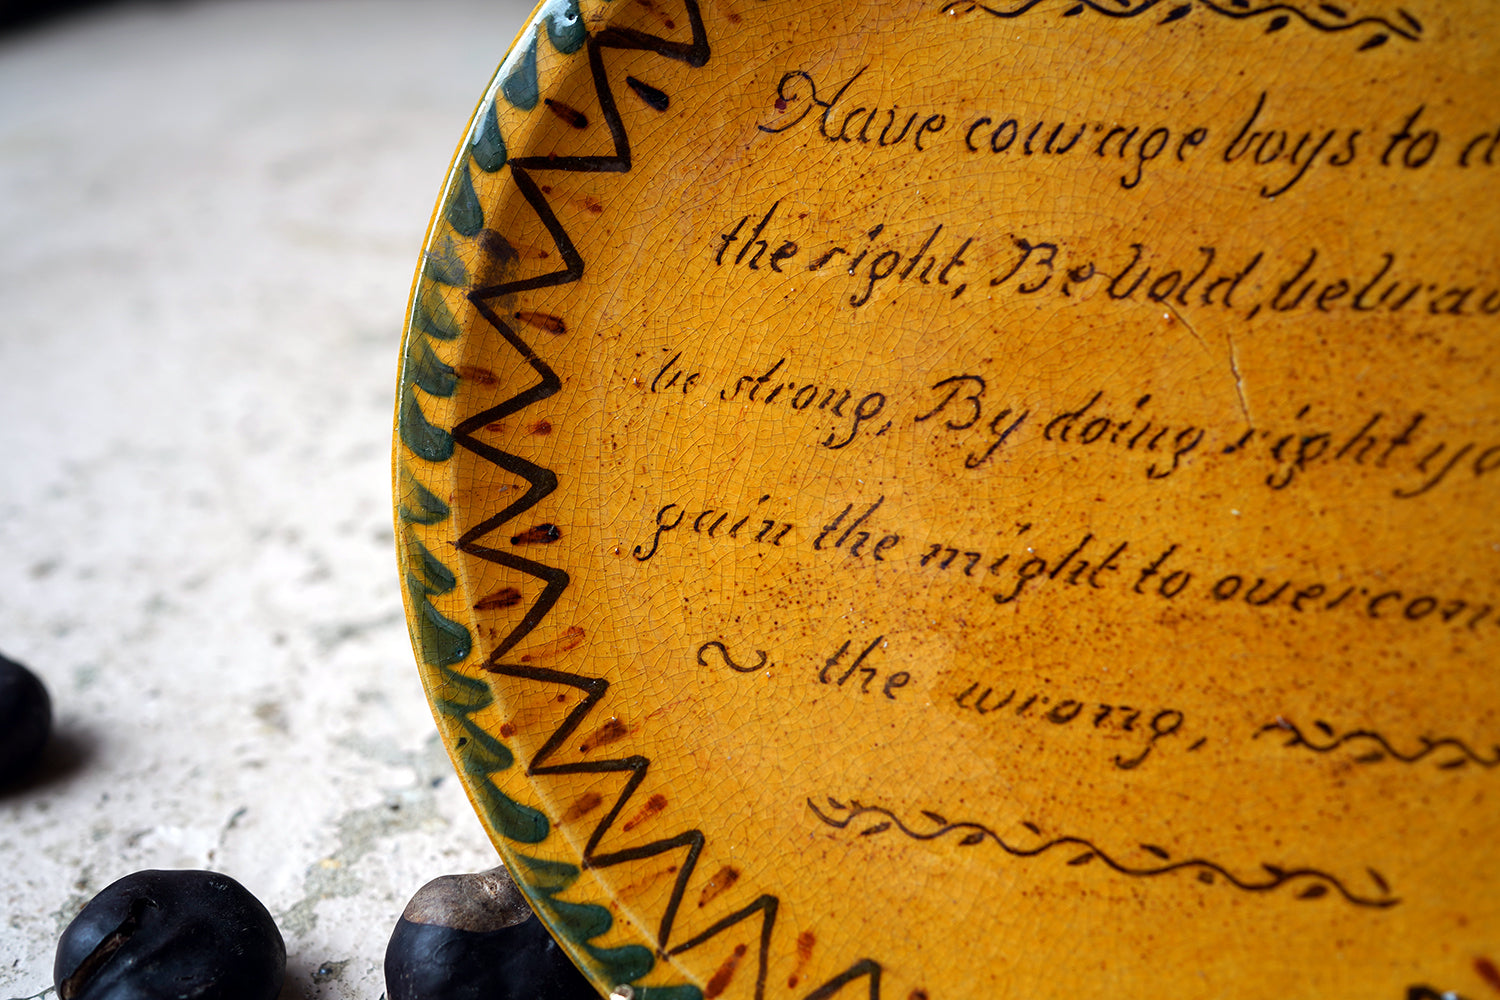 Have courage boys to d
the right, Be bold, be brav
be strong, By doing right yo
gain the might to overcom
~ the wrong,